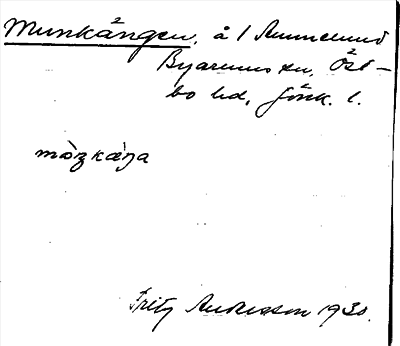 Munkängen, å 1 Ammelund
Byarums sn, Öst-
bo hd, Jönk. l.
mòŋkäŋa
Fritz Andersson 1930.